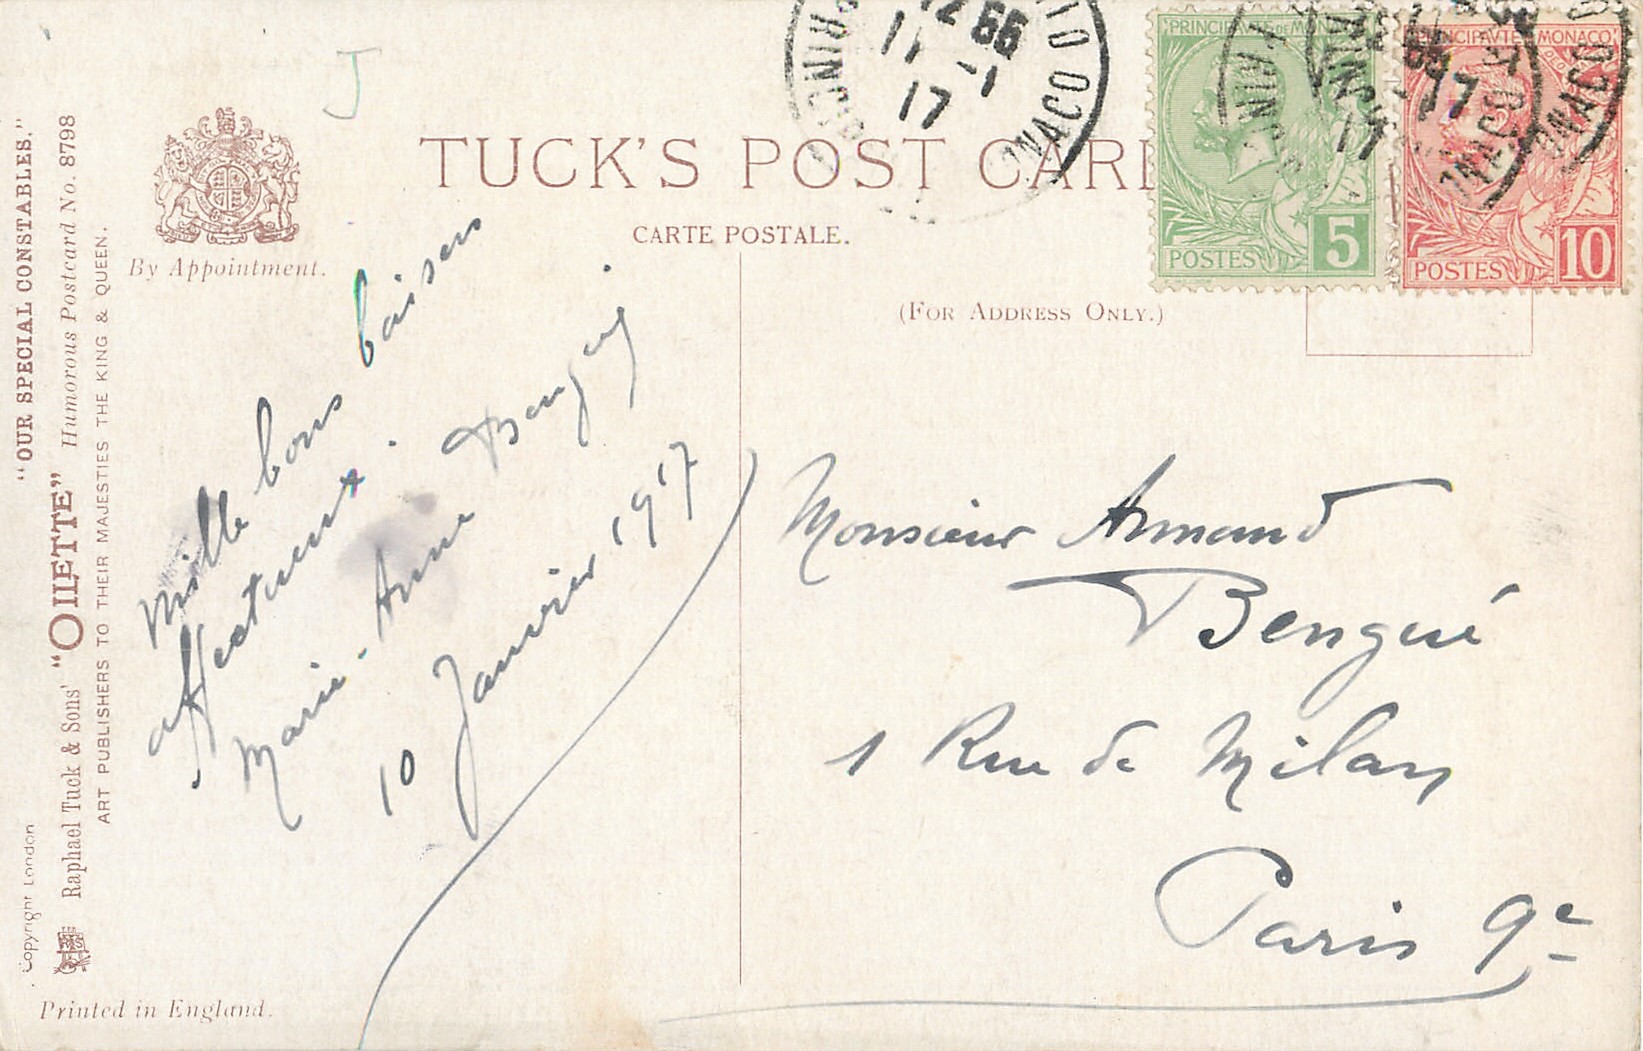 "OUR SPECIAL CONSTABLES."
Humorous Postcard No. 8798
Raphael Tuck & Sons' "OILETTE"
ART PUBLISHERS TO THEIR MAJESTIES THE KING & QUEEN.
Copyright London
Printed in England.
By Appointment.
TUCK'S POST CARD
CARTE POSTALE.
(FOR ADDRESS ONLY.)
PRINCIPAUTE DE MONACO
POSTES 5
PRINCIPAUTE MONACO
POSTES 10
11 -1
17
Mille bons baisers
affectueux.
Marie-Anne
10 Janvier 1917
Monsieur Armand
Bengué
1 Rue de Milan
Paris 9e